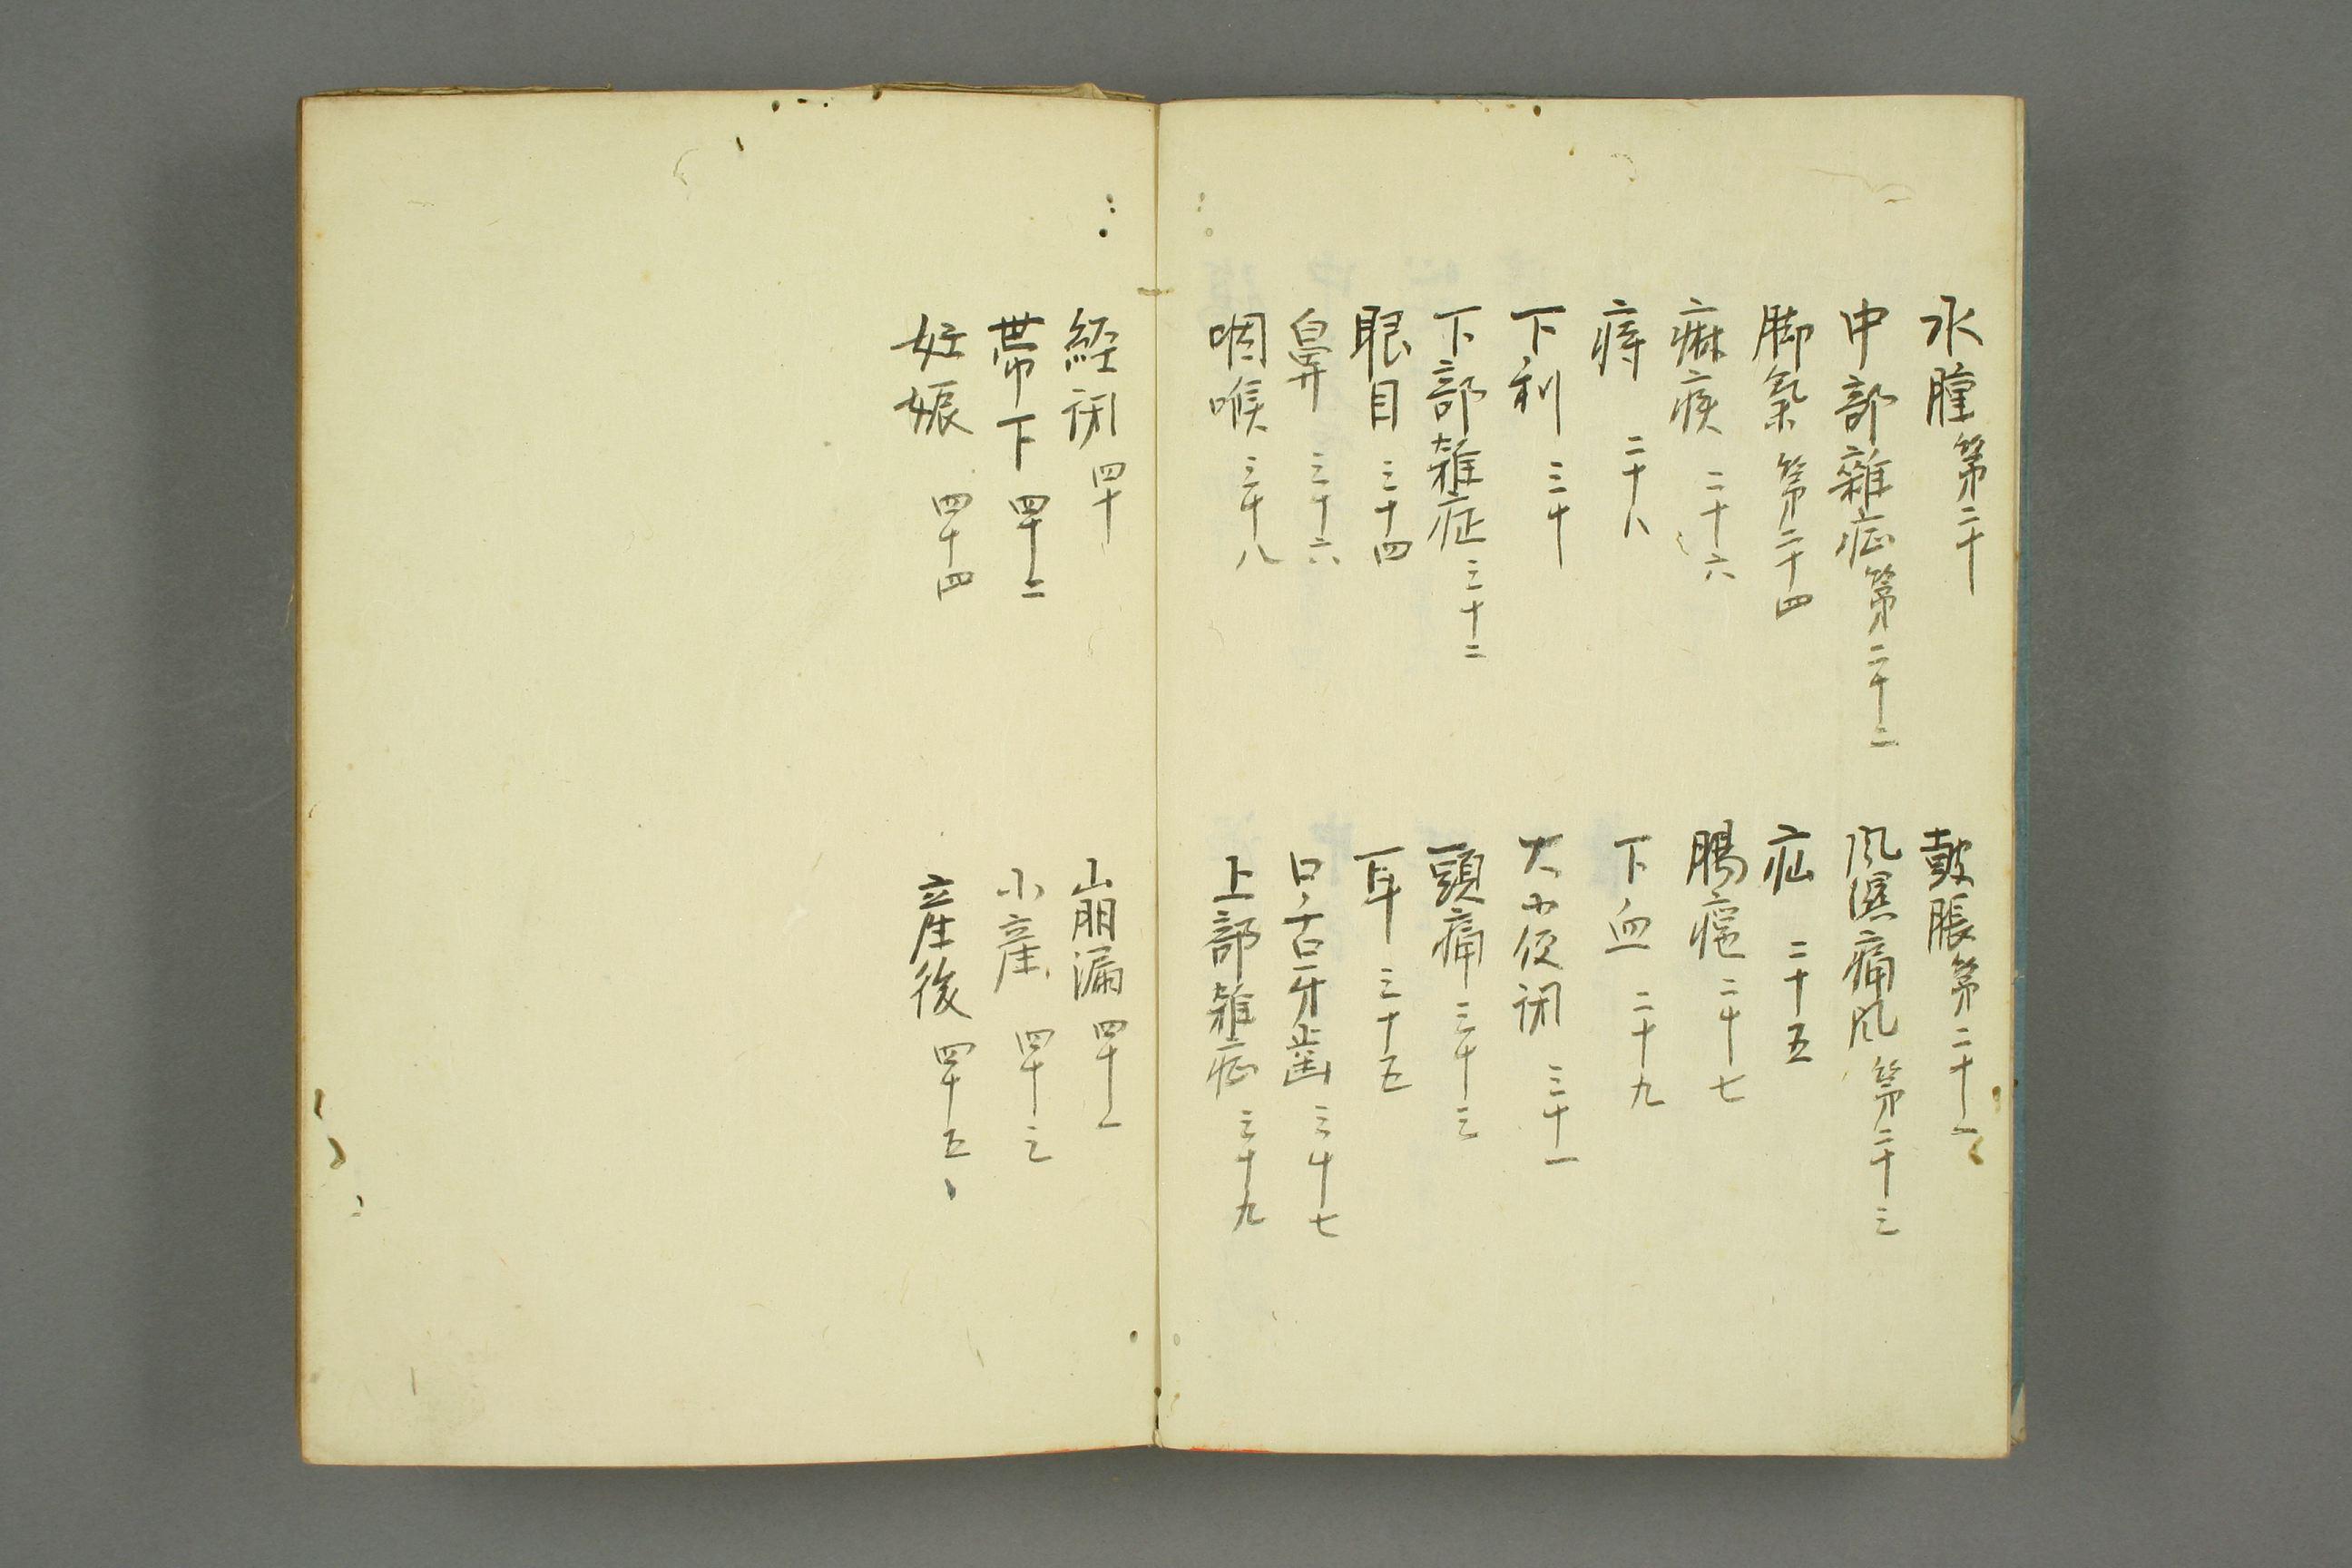 水腫第二十
鼓脹第二十一
中部雜症第二十二
風濕痛風第二十三
脚氣第二十四
疝 二十五
痳疾 二十六
腸癰 二十七
痔 二十八
下血 二十九
下利 三十
大小便閉 三十一
下部雑症 三十二
頭痛 三十三
眼目 三十四
耳 三十五
鼻 三十六
口舌牙歯 三十七
咽喉 三十八
上部雑症 三十九
経閉 四十
崩漏 四十一
帯下 四十二
小産 四十三
妊娠 四十四
産後 四十五